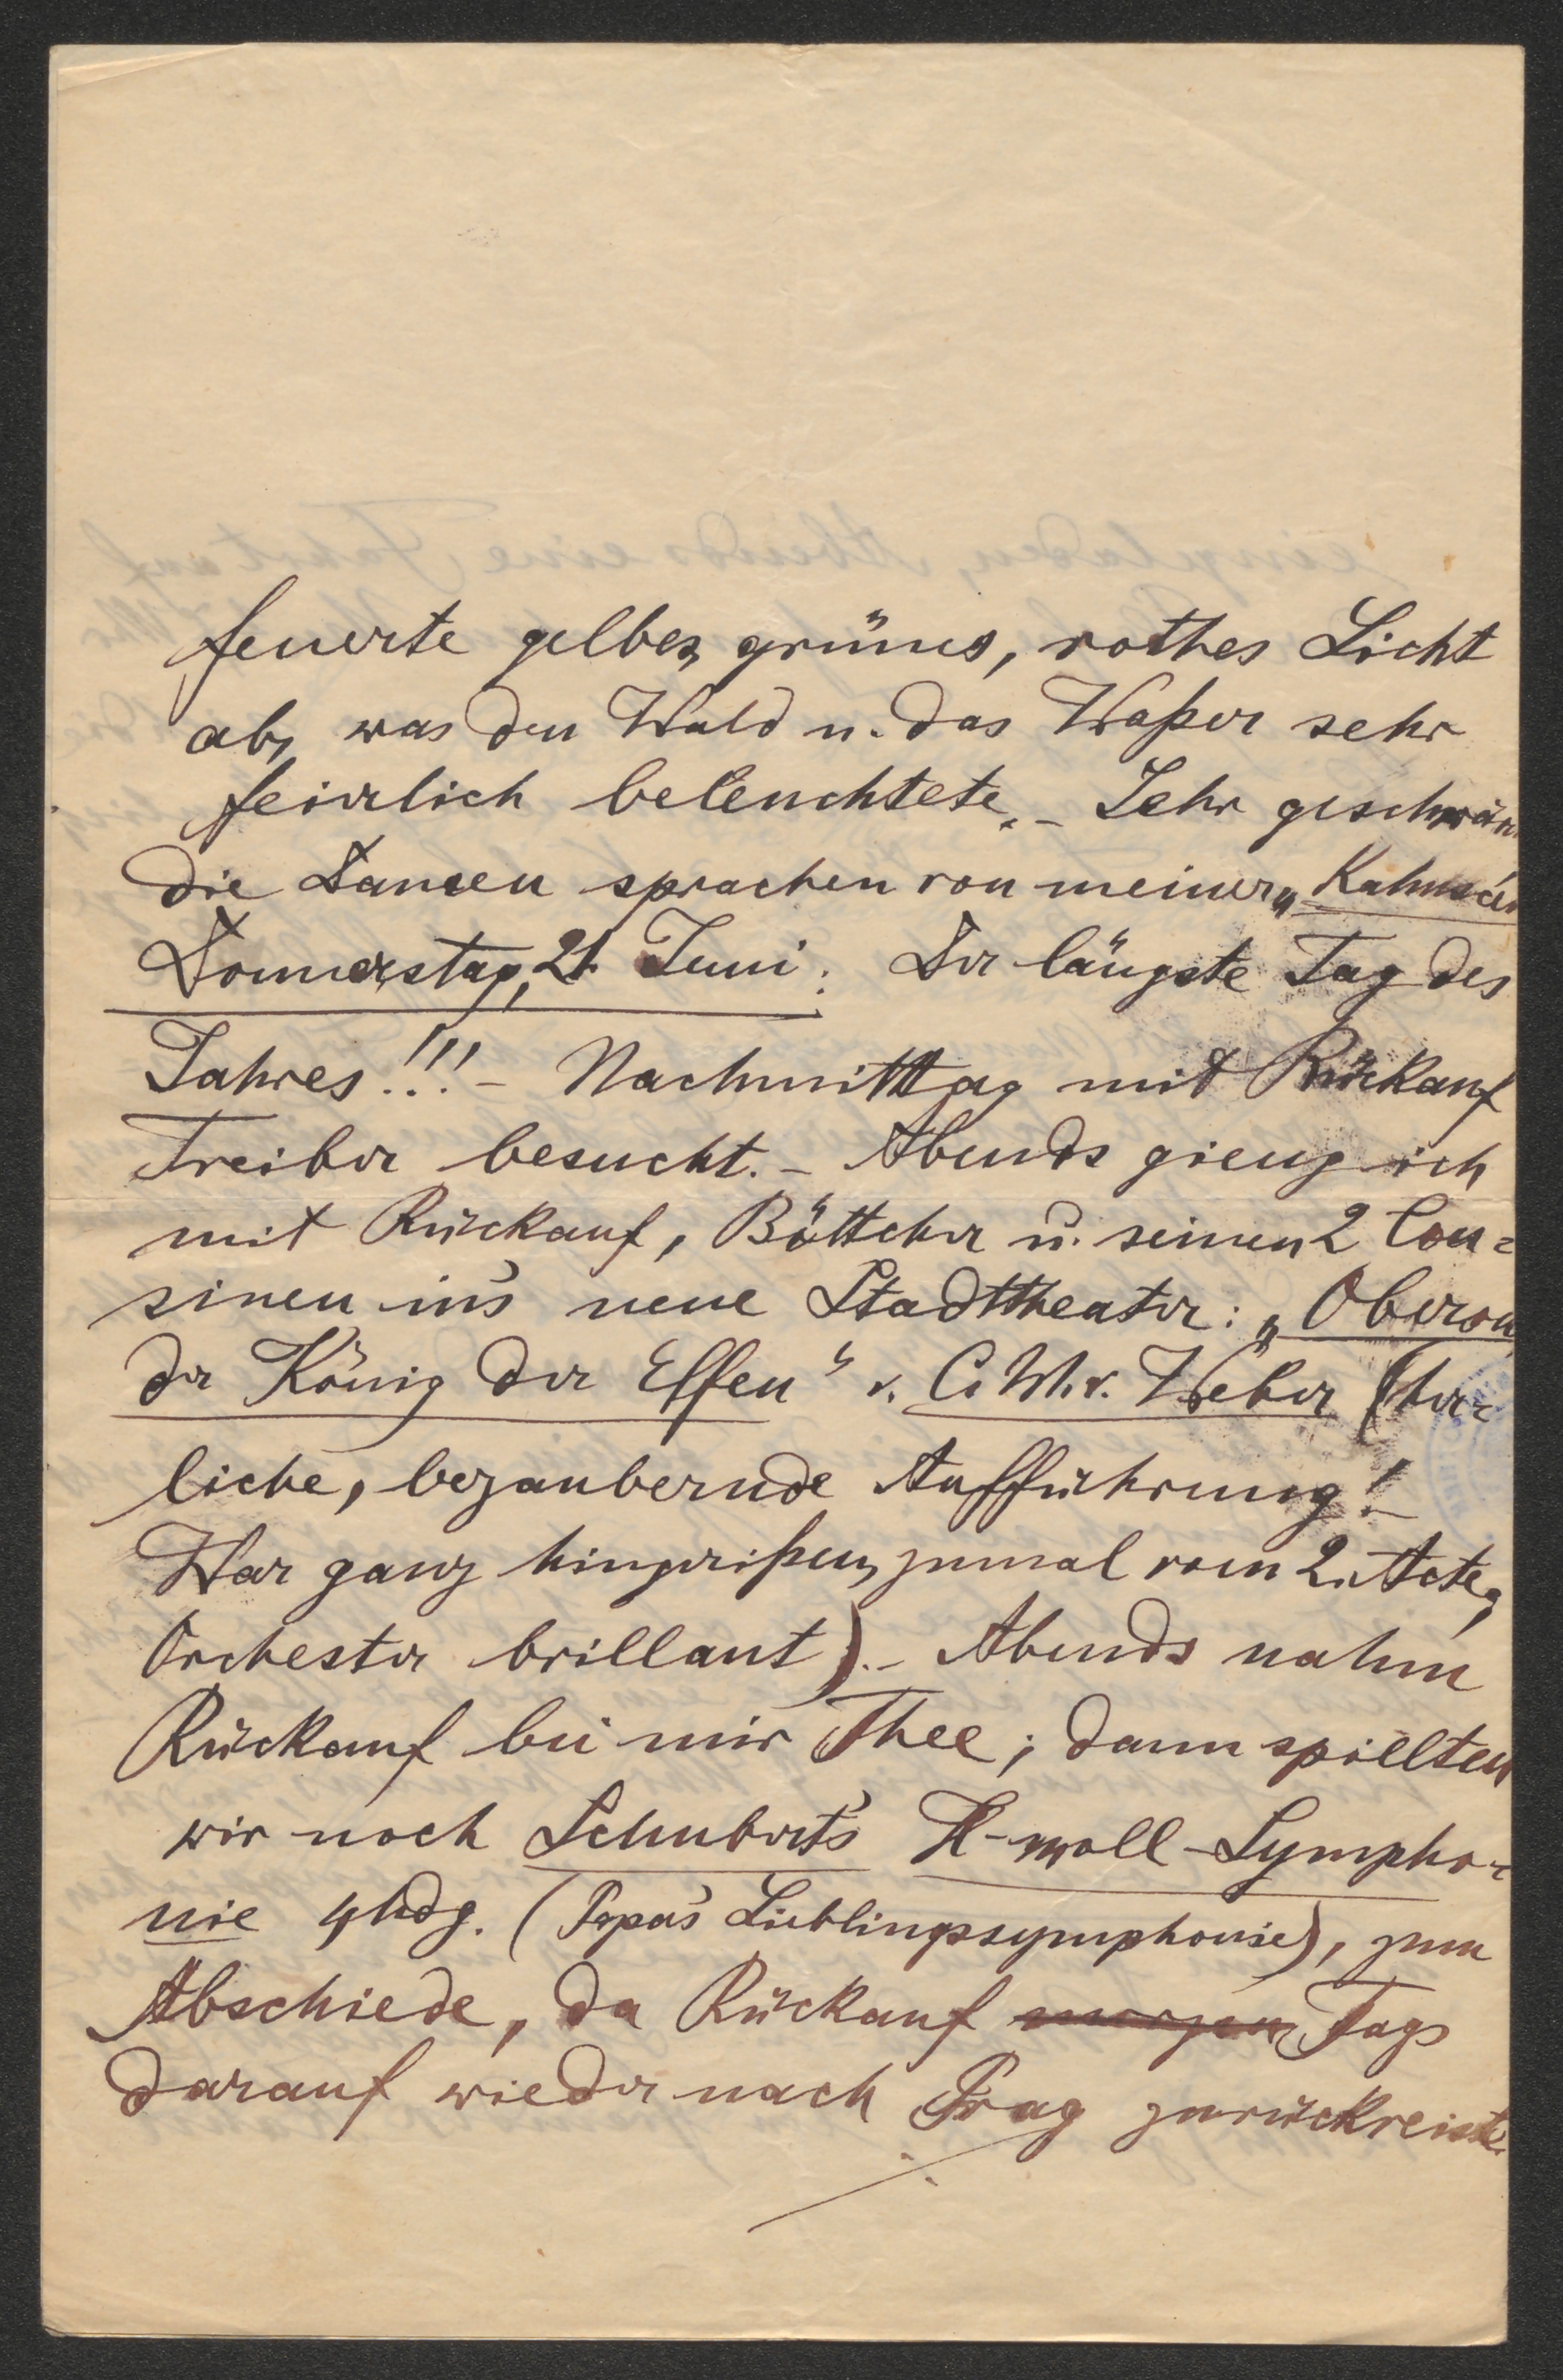 feuerte gelbes, grünes, rothes Licht
ab, was den Wald u. das Waßer sehr
feierlich beleuchtete. – Sehr geschwärm
die Damen sprachen von meiner „
Donnerstag, 21. Juni: Der längste Tag des
Jahres!!! – Nachmittag mit Rückauf
Treiber besucht. – Abends gieng ich
mit Rückauf, Böttcher u. seinen 2 Cou=
sinen in's neue Stadttheater: „Oberon,
der König der Elfen“ v. C. M. v. Weber (herr=
liche, bezaubernde Aufführung! –
War ganz hingerißen, zumal vom 2. Acte,
Orchester brillant). – Abends nahm
Rückauf bei mir Thee; dann spielten
wir noch Schubert's H-moll-Sympho=
nie 4hdg. (Papa's Lieblingssymphonie), zum
Abschiede, da Rückauf morgen Tags
darauf wieder nach Prag zurückreiste.